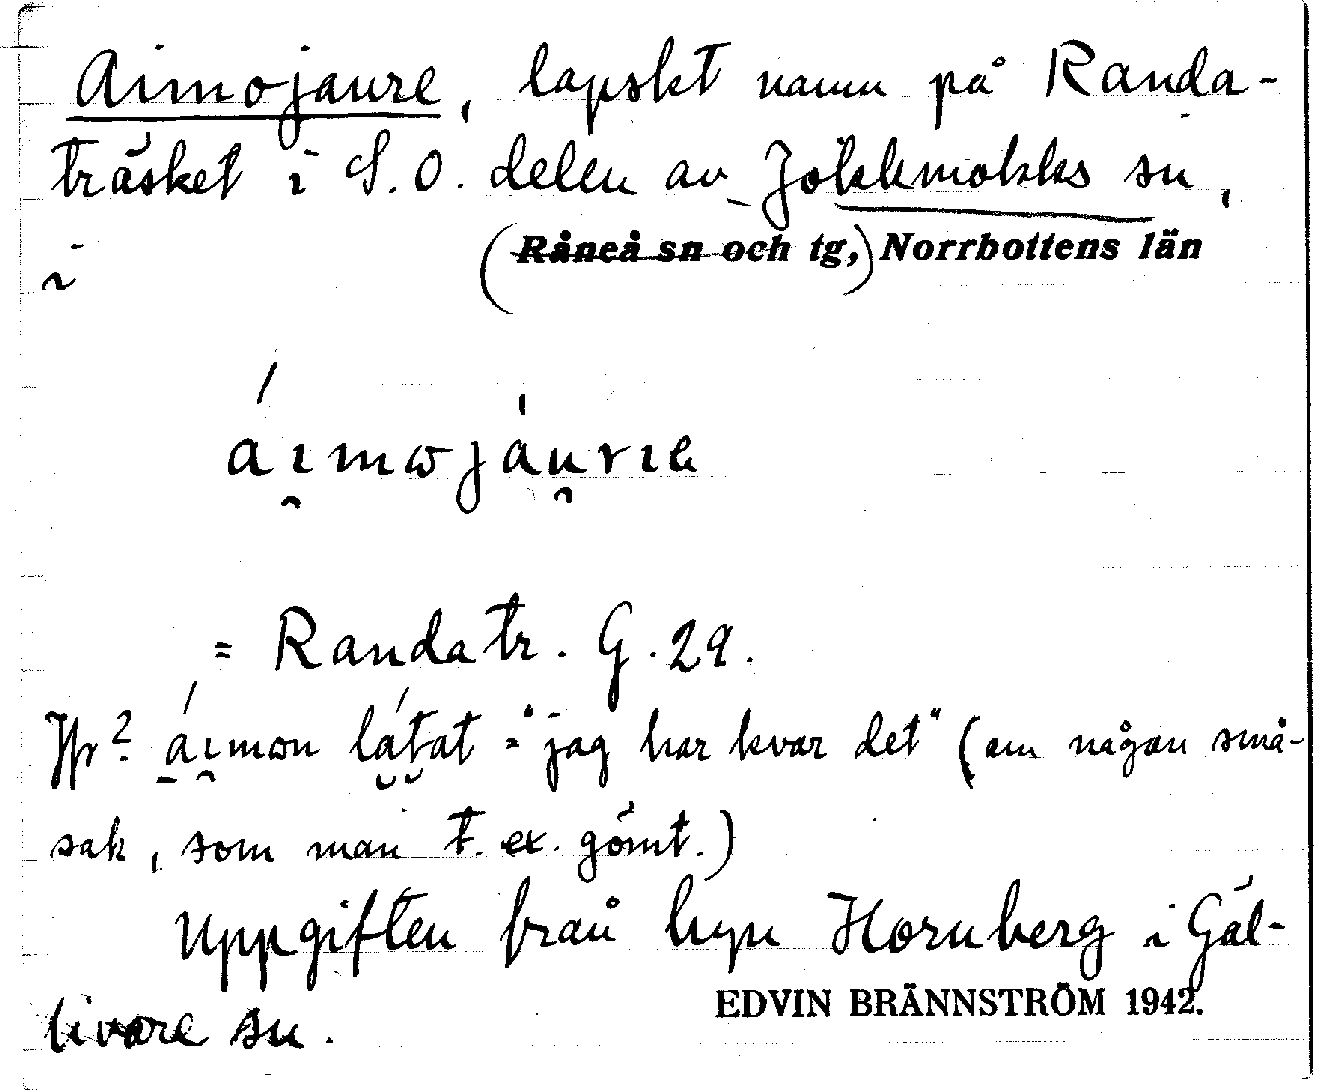 Aimojaure, lapskt namn på Randa-
träsket i S.O. delen av Jokkmokks sn,
i (Råneå sn och tg,) Norrbottens län
áı̯mωjáu̯rıe
= Randatr. G. 29.
Jfr? áı̯mωn látat = "jag har kvar det" (om någon små-
sak, som man t. ex. gömt.)
Uppgiften från byn Hornberg i Gäl-
livare sn.
EDVIN BRÄNNSTRÖM 1942.